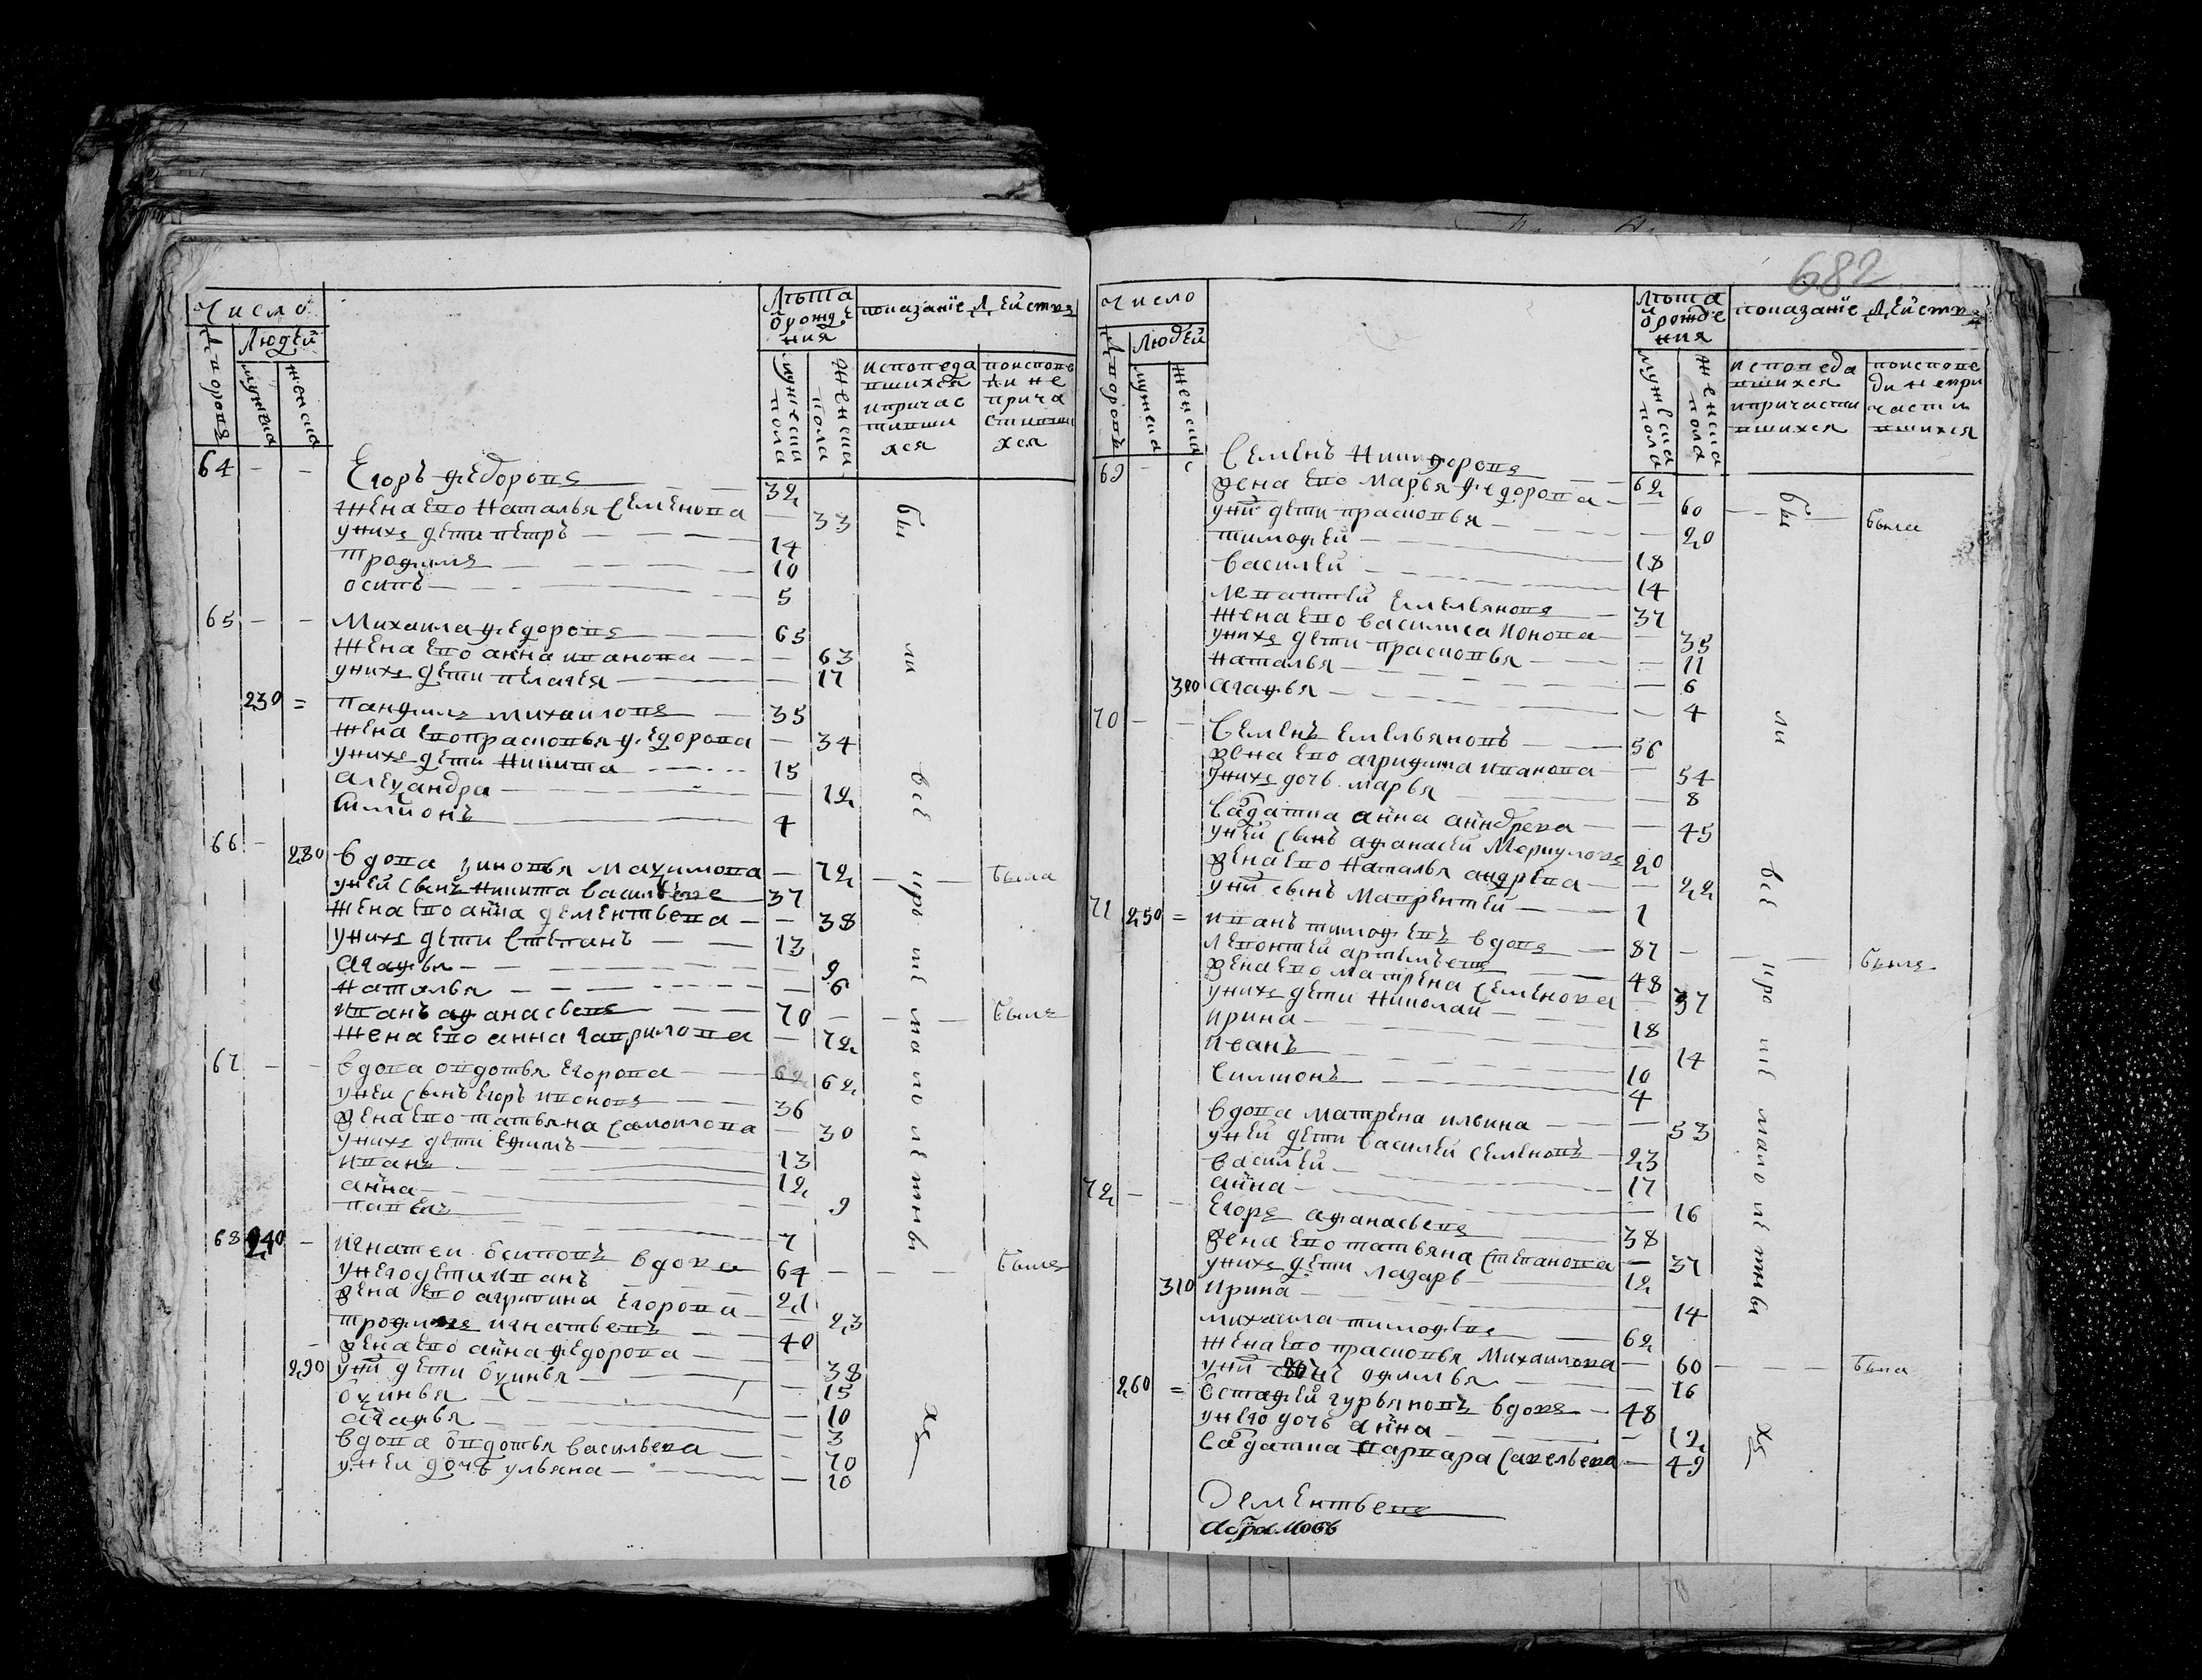 Число
Людей
дворовъ
мужеска
женска
Лѣта
ѿ рожде
ния
мужеска пола
женска пола
показанїе дѣйства
исповеда
вшихся
и причас
тивши
хся
по испове
ди не
прича
стивши
хся
64 - - Егоръ Федоровъ 32
жена ево Наталья Семенова - 33
у нихъ дети Петръ 14
Трофимъ 10
Осипъ 5
65 - - Михаила Федоровъ 65
жена ево Анна Иванова - 63
у нихъ дети Пелагея - 17
230 = Панфилъ Михаиловъ 35
жена ево Прасковья Федорова - 34
у нихъ дети Никита 15
Алеѯандра - 12
Симионъ 4
66 - 280 Вдова Зиновья Маѯимова - 72 - - была
у ней сынъ Никита Васильевъ 37
жена ево Анна Дементьева - 38
у нихъ дети Степанъ 13
Агафья 9
Наталья - 6
Иванъ Афанасьевъ 70 - - - былъ
жена ево Анна Гаврилова - 72
67 - - Вдова Овдотья Егорова 62
у неи сынъ Егоръ Ивановъ 36
жена ево Татьяна Самоилова - 30
у нихъ дети Ефимъ 13
Иванъ 12
Анна - 9
Павелъ 7
68 240 - Игнатеи Осиповъ вдовъ 64 - - - былъ
у него дети Иванъ 21
жена ево Агрипина Егорова - 23
Трофимъ Игнатьевъ 40
жена ево Анна Федорова 38
290 у ни дети Оѯинья - 15
Оѯинья - 10
Агафья - 3
Вдова Овдотья Васильева - 70
у неи дочь Ульяна - 10
бы
ли
все
про
ше
ма
ло
ле
тны
хъ
682
Число
Людей
дворовъ
мужеска
женска
Лѣта
ѿ рожде
ния
мужеска пола
женска пола
показанїе дѣйства
исповеда
вшихся
и причасти
вшихся
по испове
ди не при
части
вшихся
69 - Семенъ Никифоровъ 62
жена ево Марья Федорова - 60 - - была
у ни дети Прасковья - 20
Тимофей 18
Василей 14
Емельяновъ 37
жена ево Василиса Ионова - 35
у нихъ дети Прасковья - 11
Наталья - 6
300 Агафья - 4
70 - - Семенъ Емельяновъ 56
жена ево Агрифина Иванова - 54
у нихъ дочь Марья - 8
Салдатка Анна Андрева - 45
у ней сынъ Афанасей Меркуловъ 20
жена ево Наталья Андрева - 22
у ни сынъ Лаврентей 1
71 250 = Иванъ Тимофеевъ вдовъ 87 - - былъ
Левонтей Артемьевъ 48
жена ево Матрена Семенова - 37
у нихъ дети Николай 18
Ирина - 14
Иванъ 10
Симионъ 4
Вдова Матрена Ильина - 53
у ней дети Василей Семеновъ 23
Василеи 17
Анна - 16
72 - - Егоръ Афанасьевъ 38
жена ево Татьяна Степанова - 37
у нихъ дети Лазарь 12
310 Ирина - 14
Михаила Тимофеевъ 62
жена ево Прасковья Михаилова - 60 - - - была
у ни - 16
260 = Остафей Гурьяновъ вдовъ - 48
у него дочь Анна - 12
Салдатка Варвара Савельева - 49
бы
ли
все
про
ше
мало
ле
тны
хъ
Дементьевъ
Абрамовъ